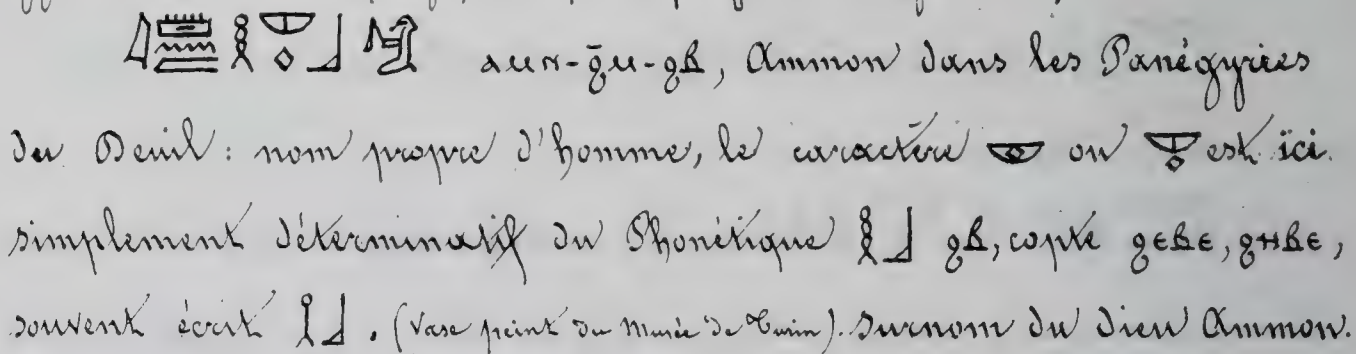 𓇋𓏠𓈖𓎛𓎱𓃀 ⲁⲙⲛ-ϩ̄ⲙ-ϩⲃ, Ammon dans les Panégyries
du Deuil: nom propre d'homme, le caractère 𓎱 ou est ici
simplement déterminatif du Phonétique 𓎛𓃀 ϩⲃ, copte ϩⲉⲃⲉ, ϩⲏⲃⲉ,
souvent écrit 𓎛𓃀. (Vase peint du Musée de Turin). Surnom du Dieu Ammon.